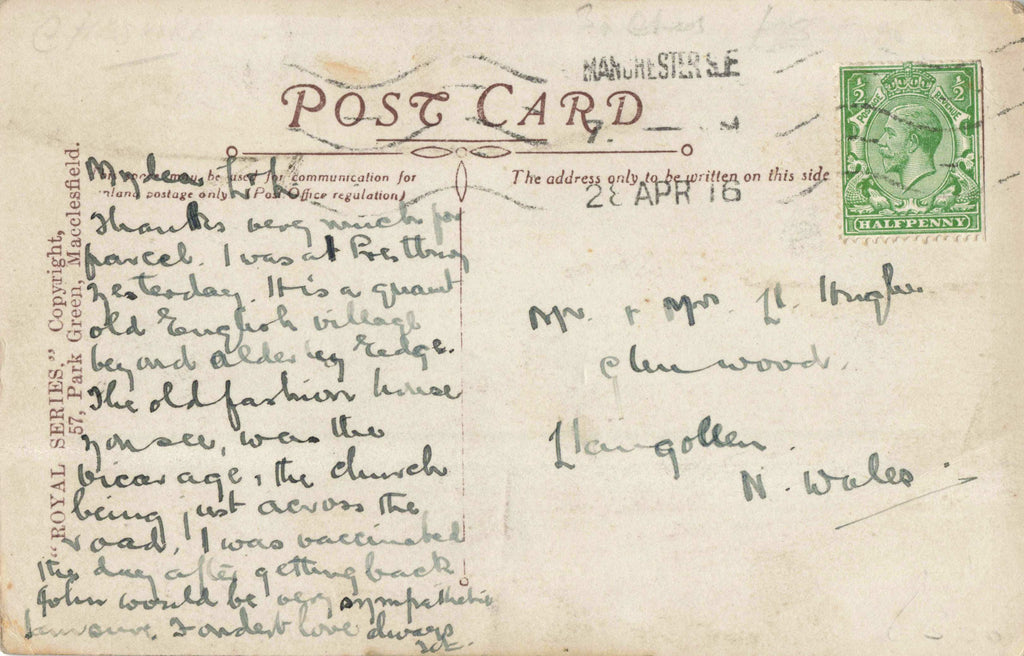 MANCHESTER S.E
POST CARD
28 APR 16
½ ½
POSTAGE REVENUE
HALFPENNY
may be used for communication for
inland postage only (Post Office regulation)
The address only to be written on this side
"ROYAL SERIES," Copyright,
57, Park Green, Macclesfield.
My dear
Thanks very much for
parcel. I was at Prestbury
yesterday. It is a quaint
old English village
beyond Alderley Edge.
The old fashion house
you see, was the
vicarage, the church
being just across the
road. I was vaccinated
the day after getting back
John would be very sympathetic
I am sure. Fondest love always
Mr. & Mrs Ll. Hughes
Glenwood.
Llangollen
N. Wales